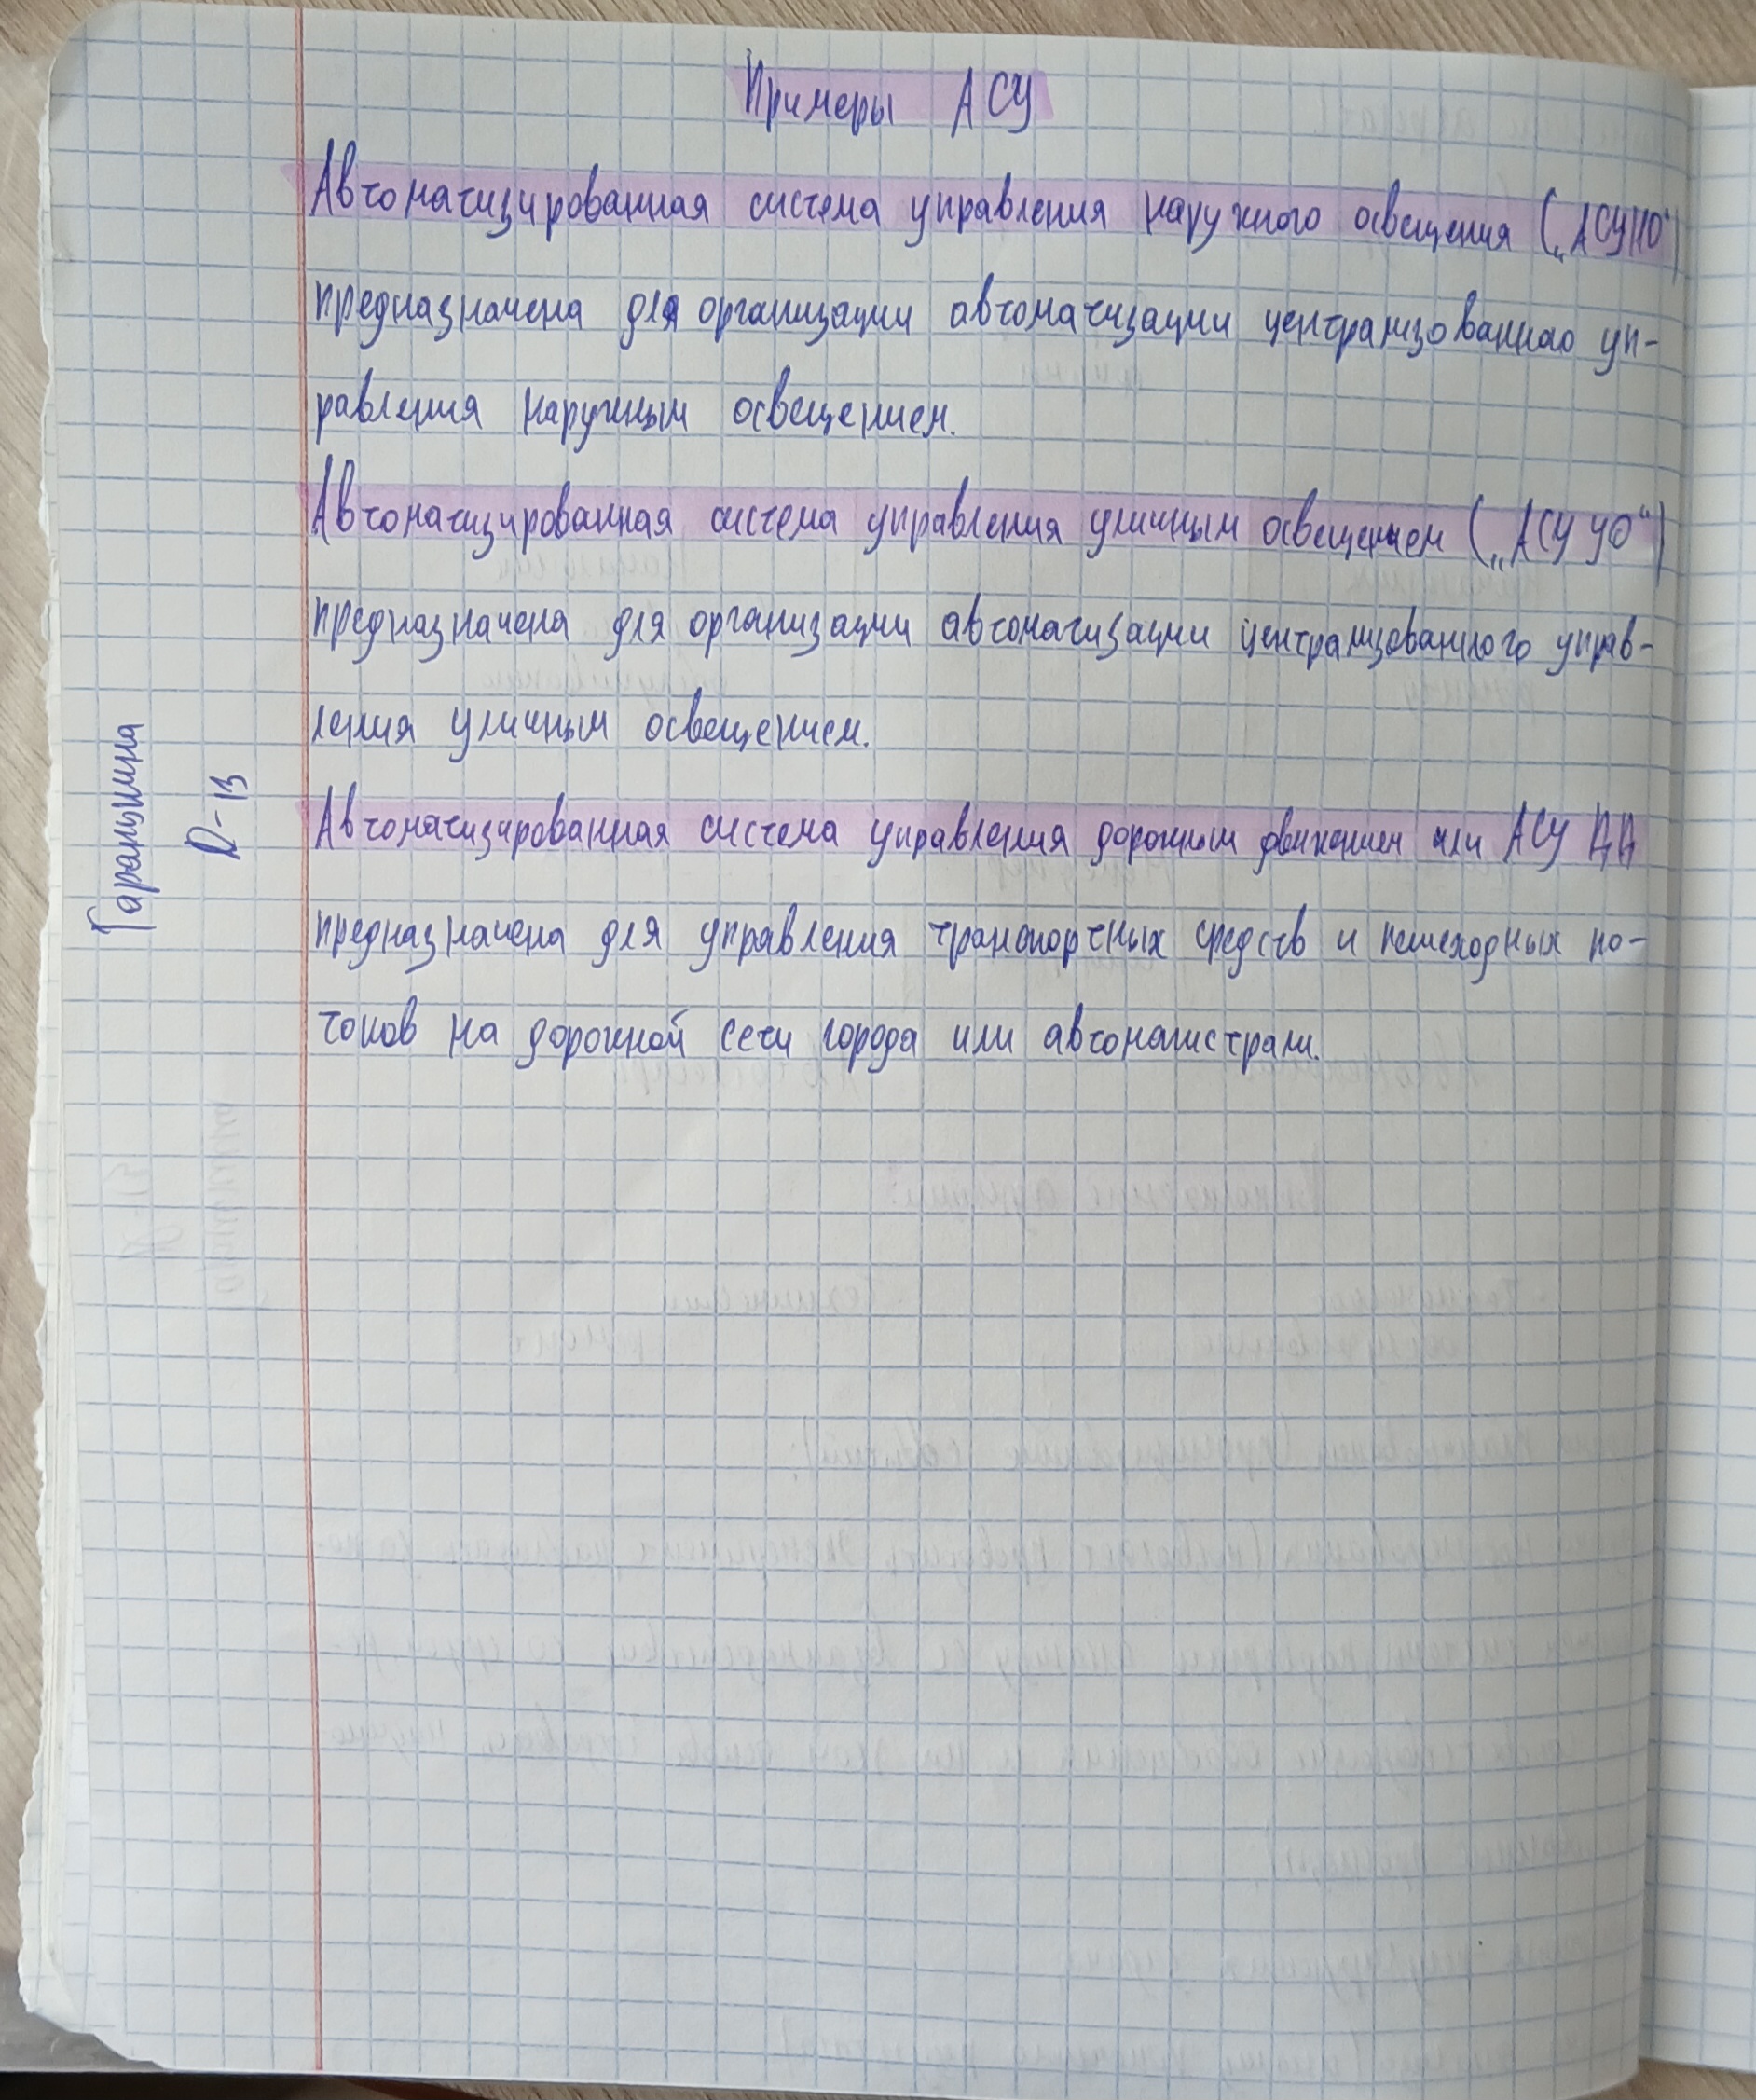 Примеры АСУ
Автоматизированная система управления наружного освещения („АСУНО“)
предназначена для организации автоматизации централизованнао уп-
равления наружным освещением.
Автоматизированная система управления уличным освещением („АСУ УО“)
предназначена для организации автоматизации централизованного управ-
ления уличным освещением.
Автоматизированная система управления дорожным движением или АСУ ДД
предназначена для управления транспортных средств и пешеходных по-
токов на дорожной сети города или автомагистрали.
Гаранжина
D-13